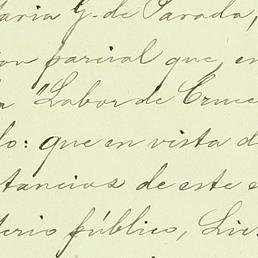 taria G. de Parada,
on parcial que, en
a "Labor de Cruce
lo: que en vista d
tancias de este e
terio público, Lic.